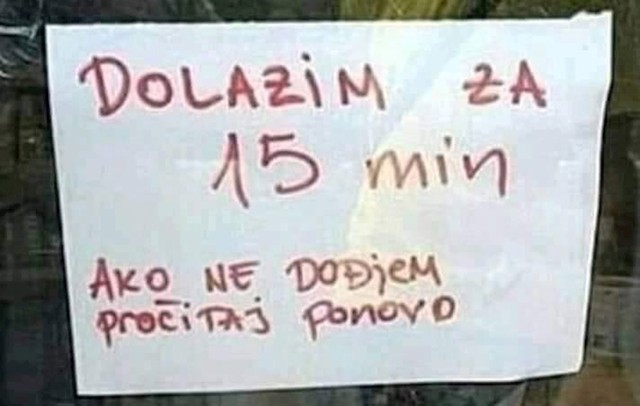 DOLAZiM ZA
15 min
AKO NE DOĐjEM
pročiTAJ ponovo